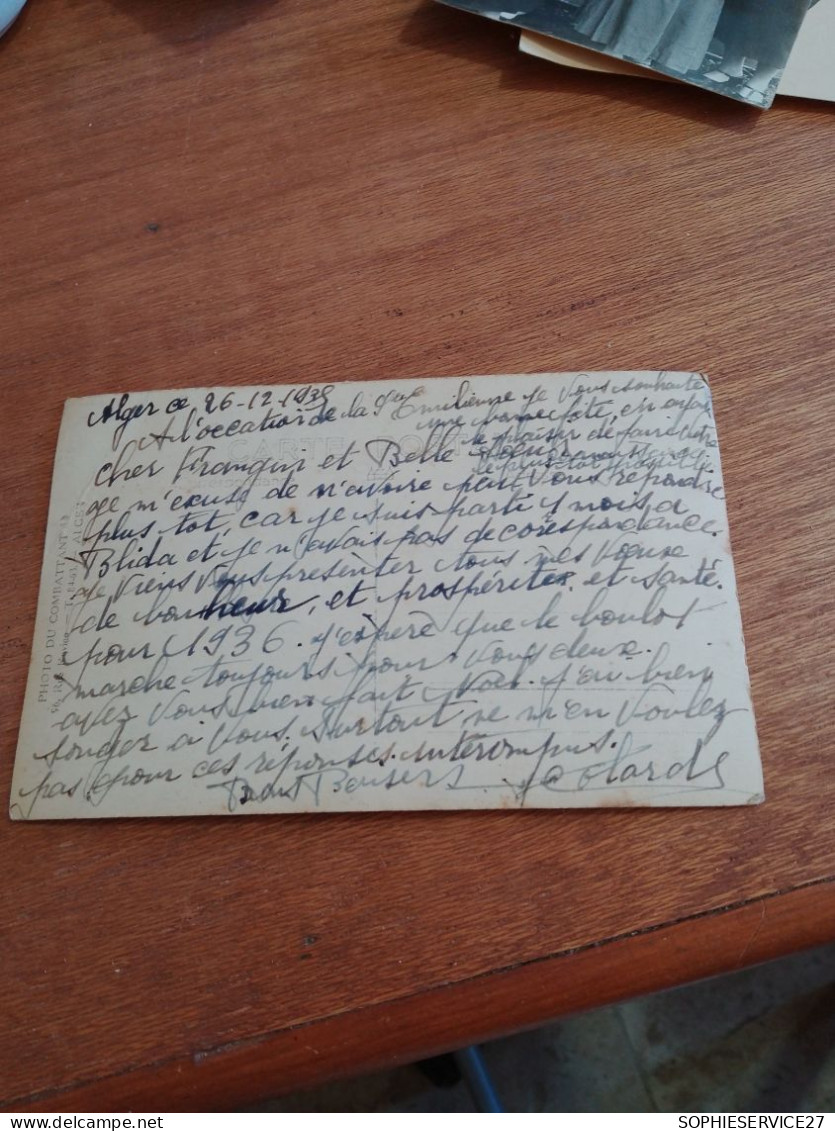 Alger ce 26-12-1935
A l'occation de la Ste Emilienne je Vous souhaite
une bonne fête, en
le plaisir de faire
cher Frangin et Belle Soeur
je m'excuse de n'avoire peut Vous répondre
plus tôt, car je suis parti 4 mois a
Blida et je n'avais pas de corespondance.
je Viens Vous présenter tous mes Voeux
de bonheur, et prospérité, et santé.
pour 1936. j'espère que le boulot
marche toujours pour Vous deux.
avez Vous bien fait Noël. j'ai bien
songer a Vous. surtout ne m'en Voulez
pas pour ces réponses interompus.
Bons Baisers
CARTE
PHOTO DU COMBATTANT
ALGER
SOPHIESERVICE27